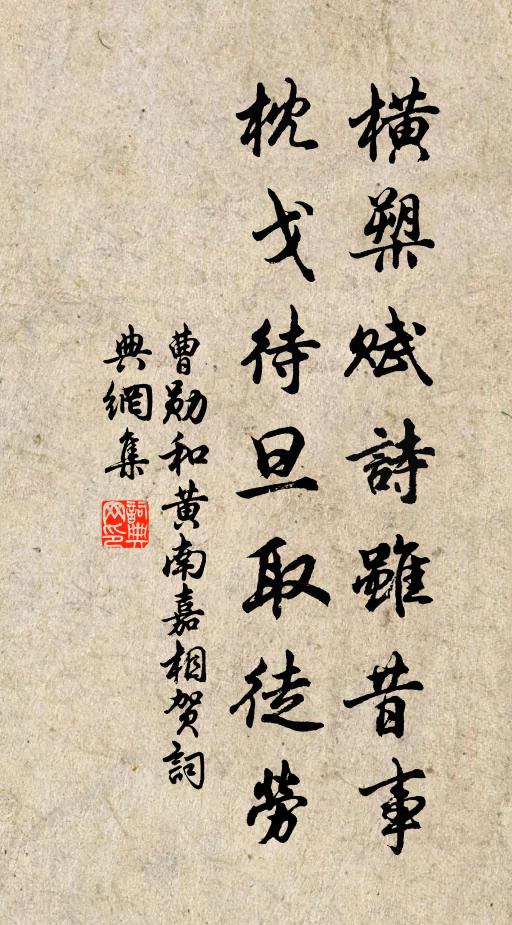 橫槊賦詩雖昔事
枕戈待旦取徒勞
曹勛和黃南嘉相賀詞
典網集
詞典
网印